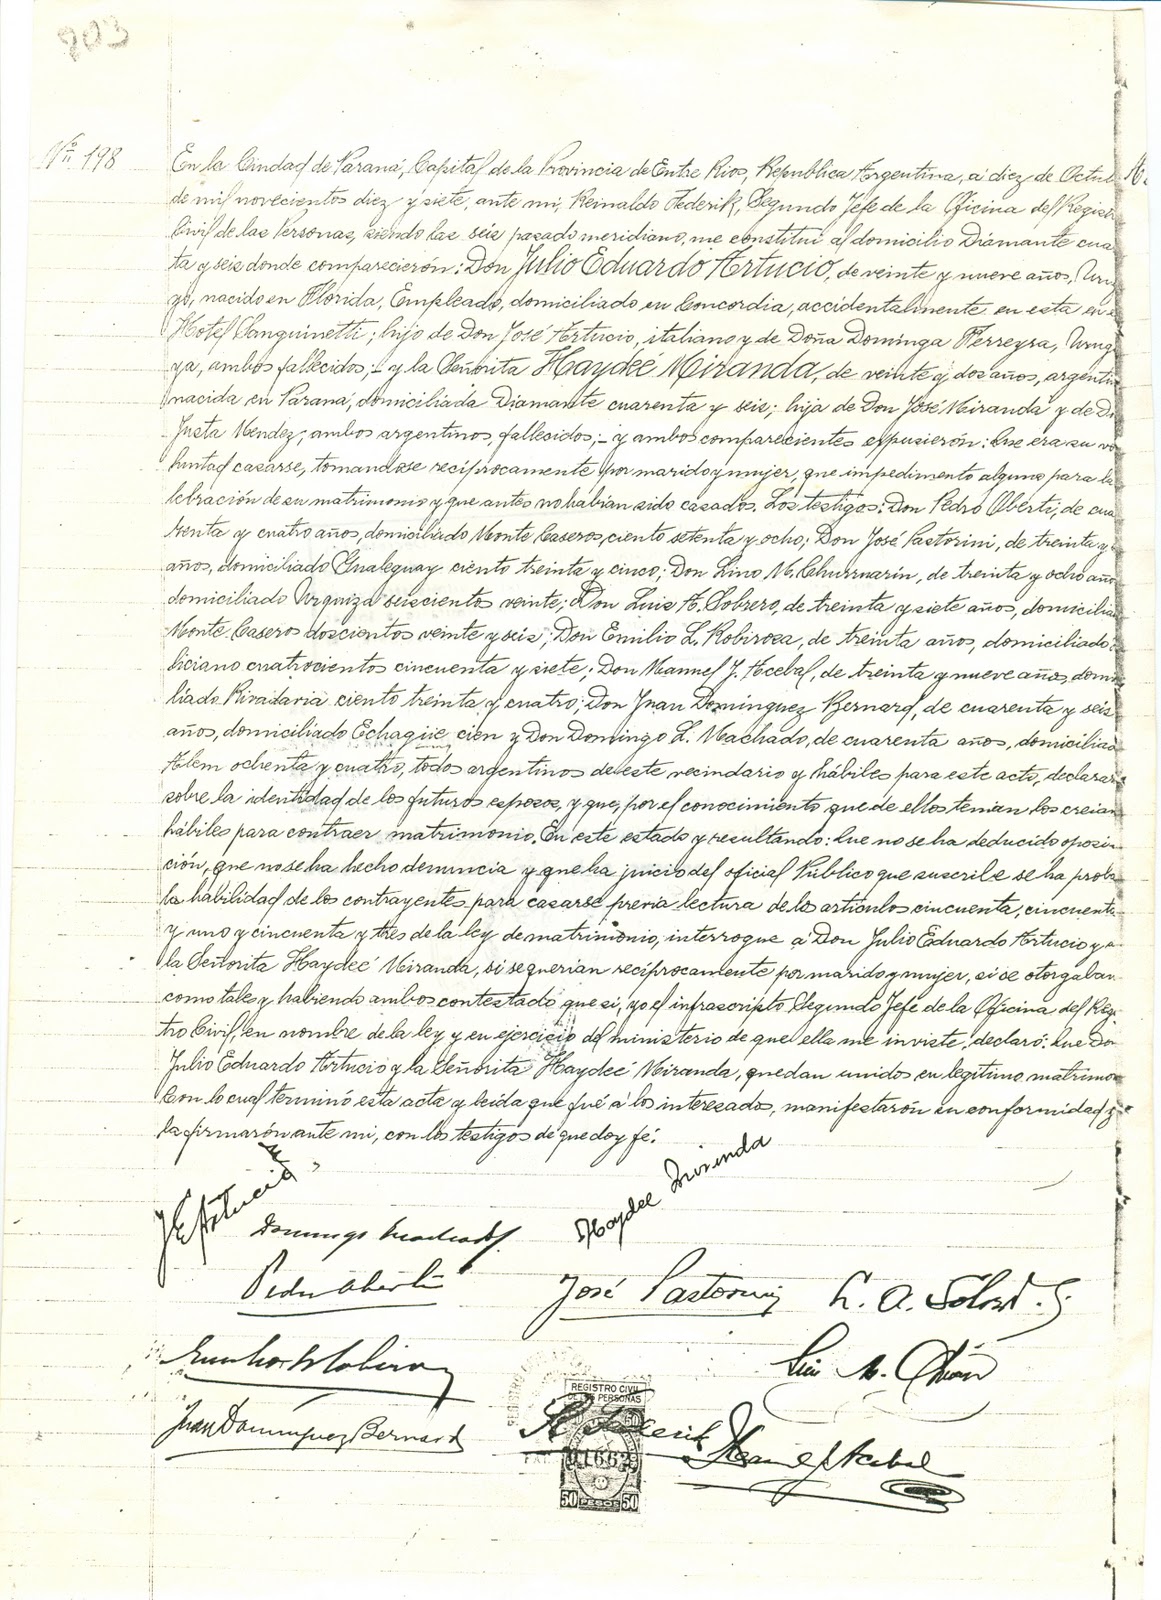 Nº 198
En la Ciudad de Paraná, Capital de la Provincia de Entre Rios, Republica Argentina, á diez de Octub
de mil novecientos diez y siete, ante mi, Reinaldo Federik, Segundo Jefe de la Oficina del Regis
Civil de las Personas, siendo las seis pasado meridiano, me constituí al domicilio Diamante cua
ta y seis donde comparecierón: Don Julio Eduardo Artucio, de veinte y nueve años, Uru
yo, nacido en Florida, Empleado, domiciliado en Concordia, accidentalmente en esta en e
Hotel Sanguinetti; hijo de Don José Artucio, italiano y de Doña Dominga Ferreyra, Urug
ya, ambos fallecidos;_ y la Señorita Haydeé Miranda, de veinte y dos años, argenti
nacida en Paraná, domiciliada Diamante cuarenta y seis; hija de Don José Miranda y de D
Justa Mendez, ambos argentinos, fallesidos;_ y ambos comparecientes expusierón: Que era su vo
luntad casarse, tomandose recíprocamente por marido y mujer, que impedimento alguno para la
lebración de su matrimonio y que antes no habían sido casados. Los testigos: Don Pedro Oberti, de cua
renta y cuatro años, domiciliado Monte Caseros, ciento setenta y ocho; Don José Pastorini, de treinta y
años, domiciliado Gualeguay ciento treinta y cinco; Don Lino M. Churruarín, de treinta y ocho año
domiciliado Urquiza seiscientos veinte; Don Luis A. Sobrero, de treinta y siete años, domicilia
Monte Caseros doscientos veinte y seis; Don Emilio L. Robirosa, de treinta años, domiciliado
liciano cuatrocientos cincuenta y siete; Don Manuel J. Acebal, de treinta y nueve años, domi
liado Rivadaria ciento treinta y cuatro; Don Juan Dominguez Bernard, de cuarenta y seis
años, domiciliado Echagüe cien y Don Domingo L. Machado, de cuarenta años, domicilia
Alem ochenta y cuatro, todos argentinos de este vecindario y hábiles para este acto, declarar
sobre la identidad de los futuros esposos, y que, por el conocimiento que de ellos tenian los creian
hábiles para contraer matrimonio. En este estado y resultando: Que no se ha deducido oposi
ción, que no se ha hecho denuncia y que ha juicio del oficial Público que suscribe se ha proba
la habilidad de los contrayentes para casarse previa lectura de los artículos cincuenta, cincuenta
y uno y cincuenta y tres de la ley de matrimonio, interrogue á Don Julio Eduardo Artucio y a
la Señorita Haydeé Miranda, si se querian recíprocamente por marido y mujer, si se otorgaban
como tales y habiendo ambos contestado que si, yo el infrascripto Segundo Jefe de la Oficina del Reg
tro Civil, en nombre de la ley y en ejercicio del ministerio de que ella me inviste, declaró: Que Do
Julio Eduardo Artucio y la Señorita Haydeé Miranda, quedan unidos en legítimo matrimo
Con lo cual terminó esta acta y leida que fué á los interesados, manifestarón su conformidad y
la firmarón ante mi, con los testigos de que doy fé.
J E Artucio
Haydee Miranda
Domingo Machado
Pedro Oberti
José Pastorini
L. A. Sobre
Lino M.
Juan Dominguez Bernard
R. Federik
Manuel J Acebal
REGISTRO CIVIL
DE LAS PERSONAS
50 PESOS 50